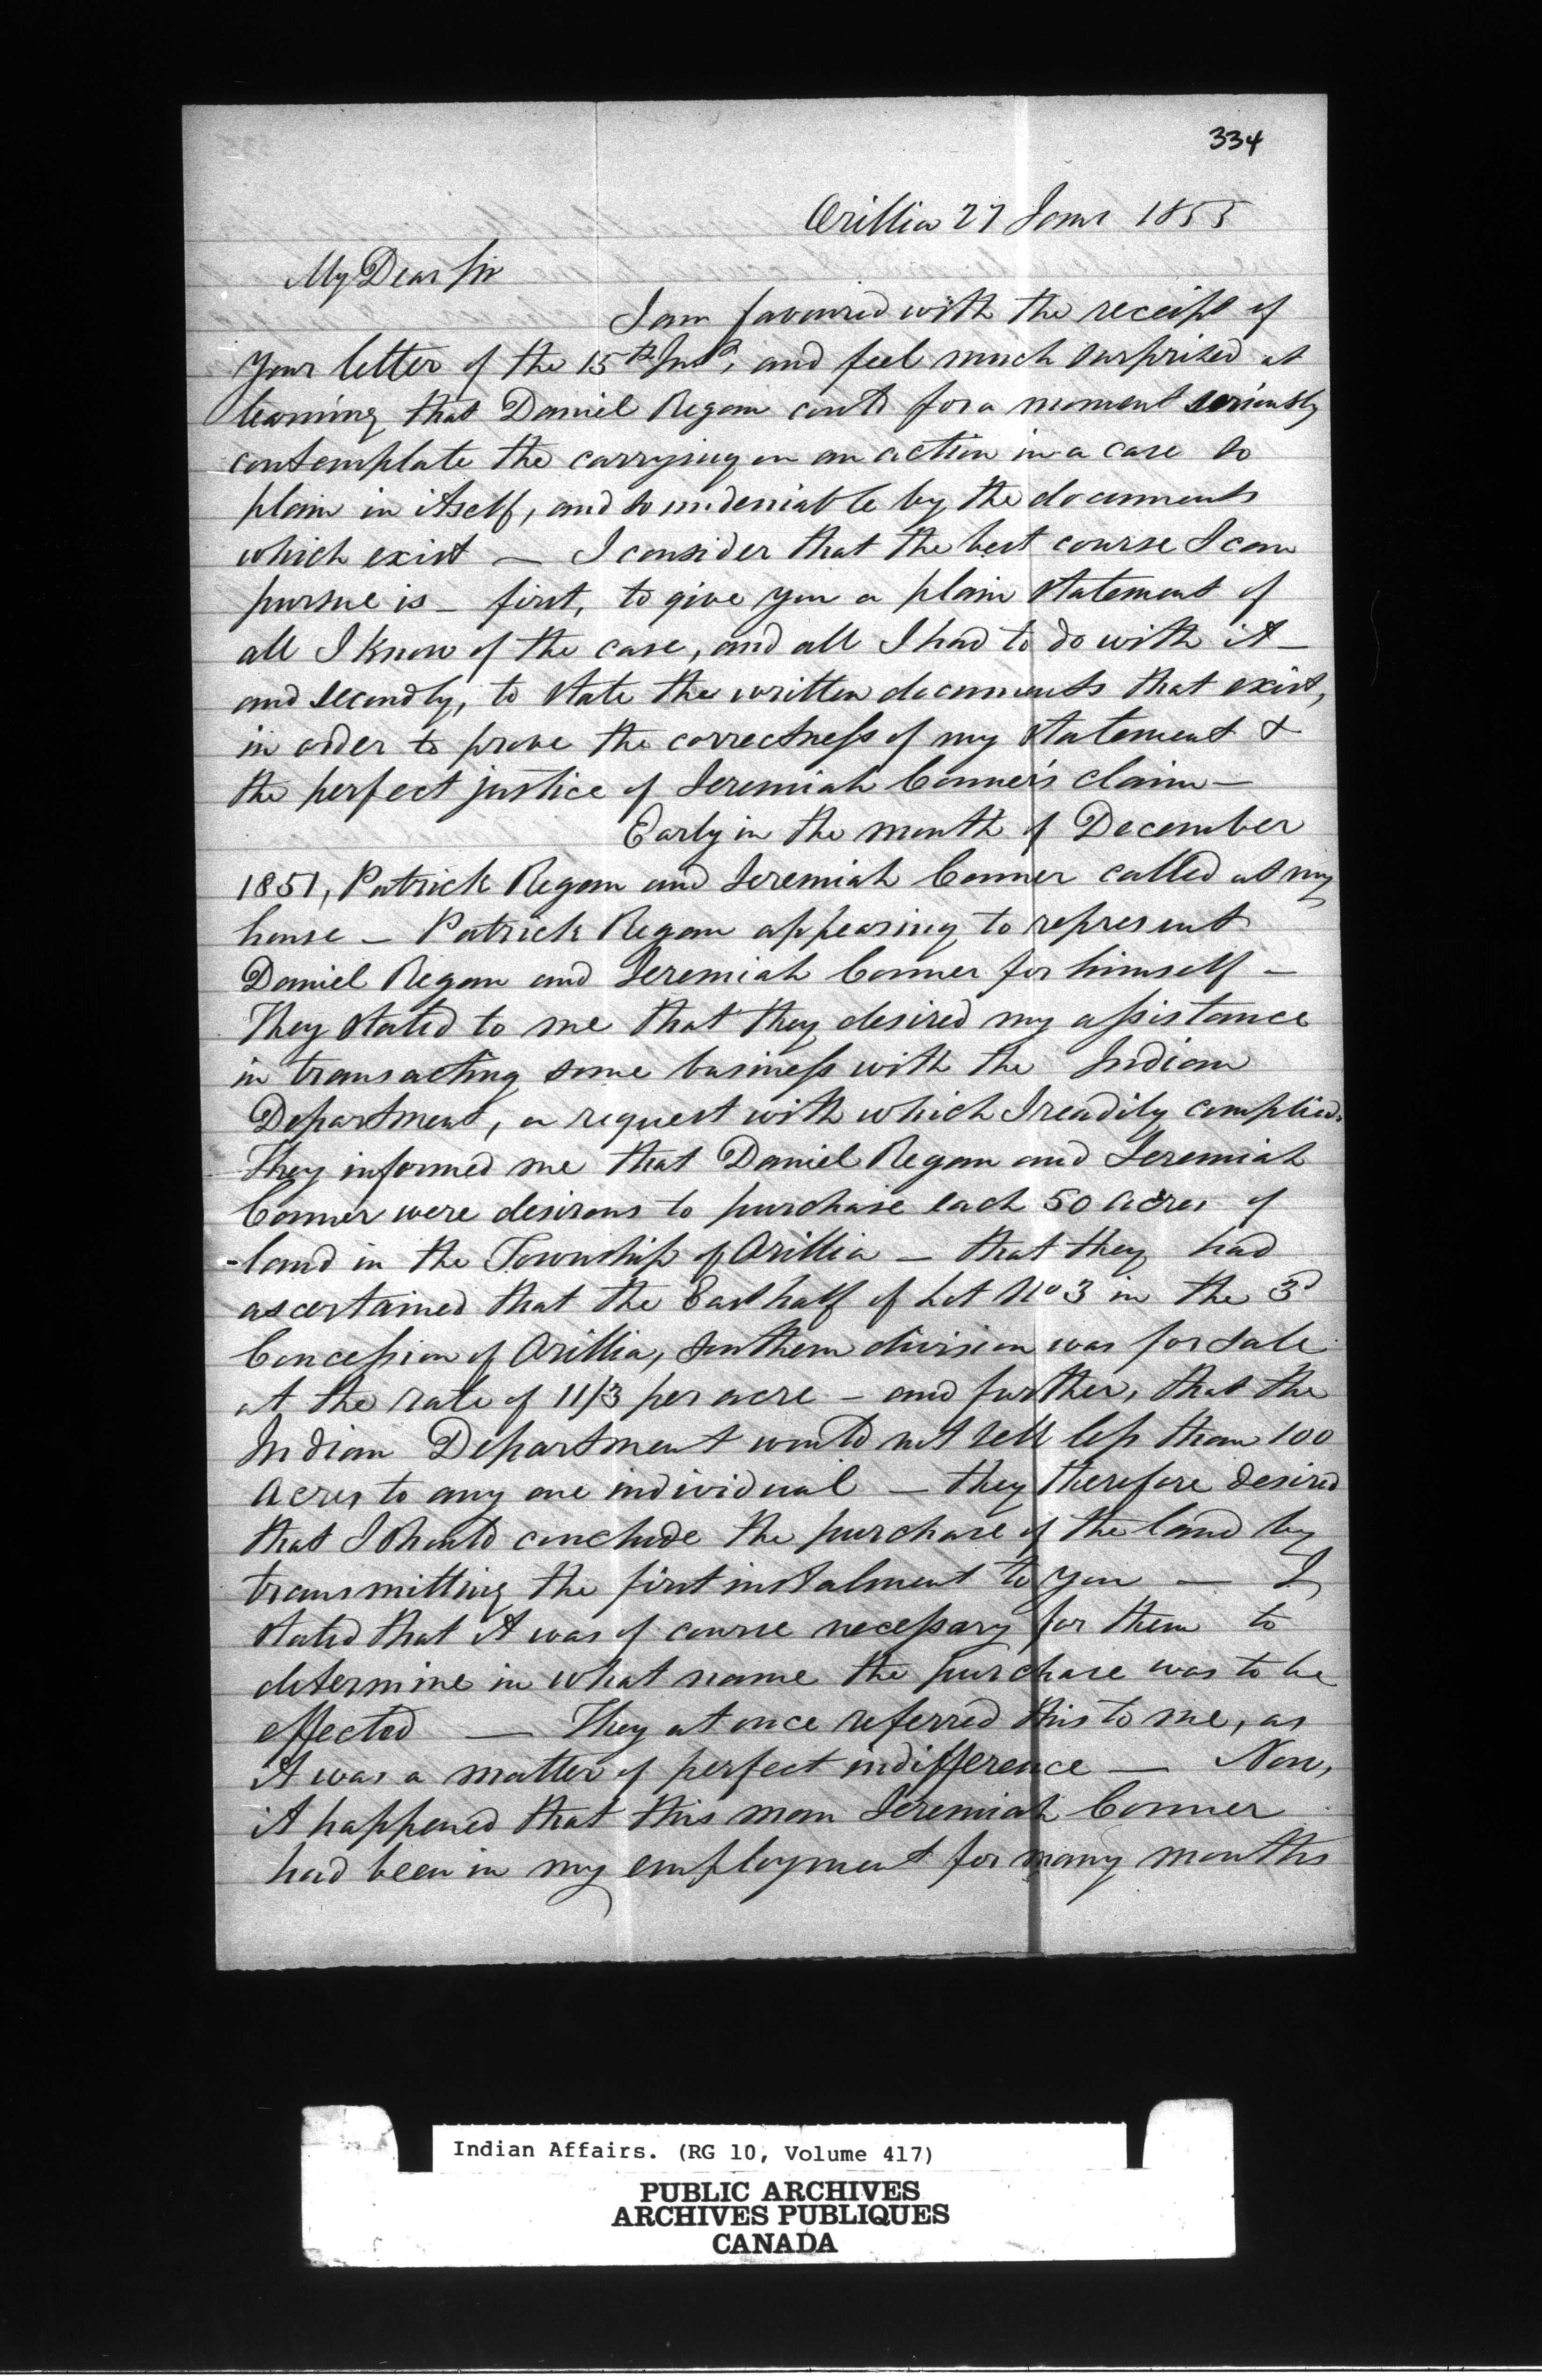 334
Orillia 27 June 1855
My Dear Sir
I am favoured with the receipt of
your letter of the 15th Inst, and feel much surprised at
learning that Daniel Regan could for a moment seriously
contemplate the carrying on an action in a case so
plain in itself, and so undeniable by the documents
which exist — I consider that the best course I can
pursue is — first, to give you a plain statement of
all I know of the case, and all I had to do with it —
and secondly, to state the written documents that exist,
in order to prove the correctness of my statement &
the perfect justice of Jeremiah Conner's claim —
Early in the month of December
1851, Patrick Regan and Jeremiah Conner called at my
house — Patrick Regan appearing to represent
Daniel Regan and Jeremiah Conner for himself —
They stated to me that they desired my assistance
in transacting some business with the Indian
Department, a request with which I readily complied.
They informed me that Daniel Regan and Jeremiah
Conner were desirous to purchase each 50 acres of
land in the Township of Orillia — that they had
ascertained that the East half of Lot No 3 in the 3d
Concession of Orillia, Southern division was for sale
at the rate of 11/3 per acre — and further, that the
Indian Department would not sell less than 100
acres to any one individual — they therefore desired
that I should conclude the purchase of the land by
transmitting the first instalment to you — I
stated that it was of course necessary for them to
determine in what name the purchase was to be
effected — They at once referred this to me, as
it was a matter of perfect indifference — Now,
it happened that this man Jeremiah Conner
had been in my employment for many months
Indian Affairs. (RG 10, Volume 417)
PUBLIC ARCHIVES
ARCHIVES PUBLIQUES
CANADA